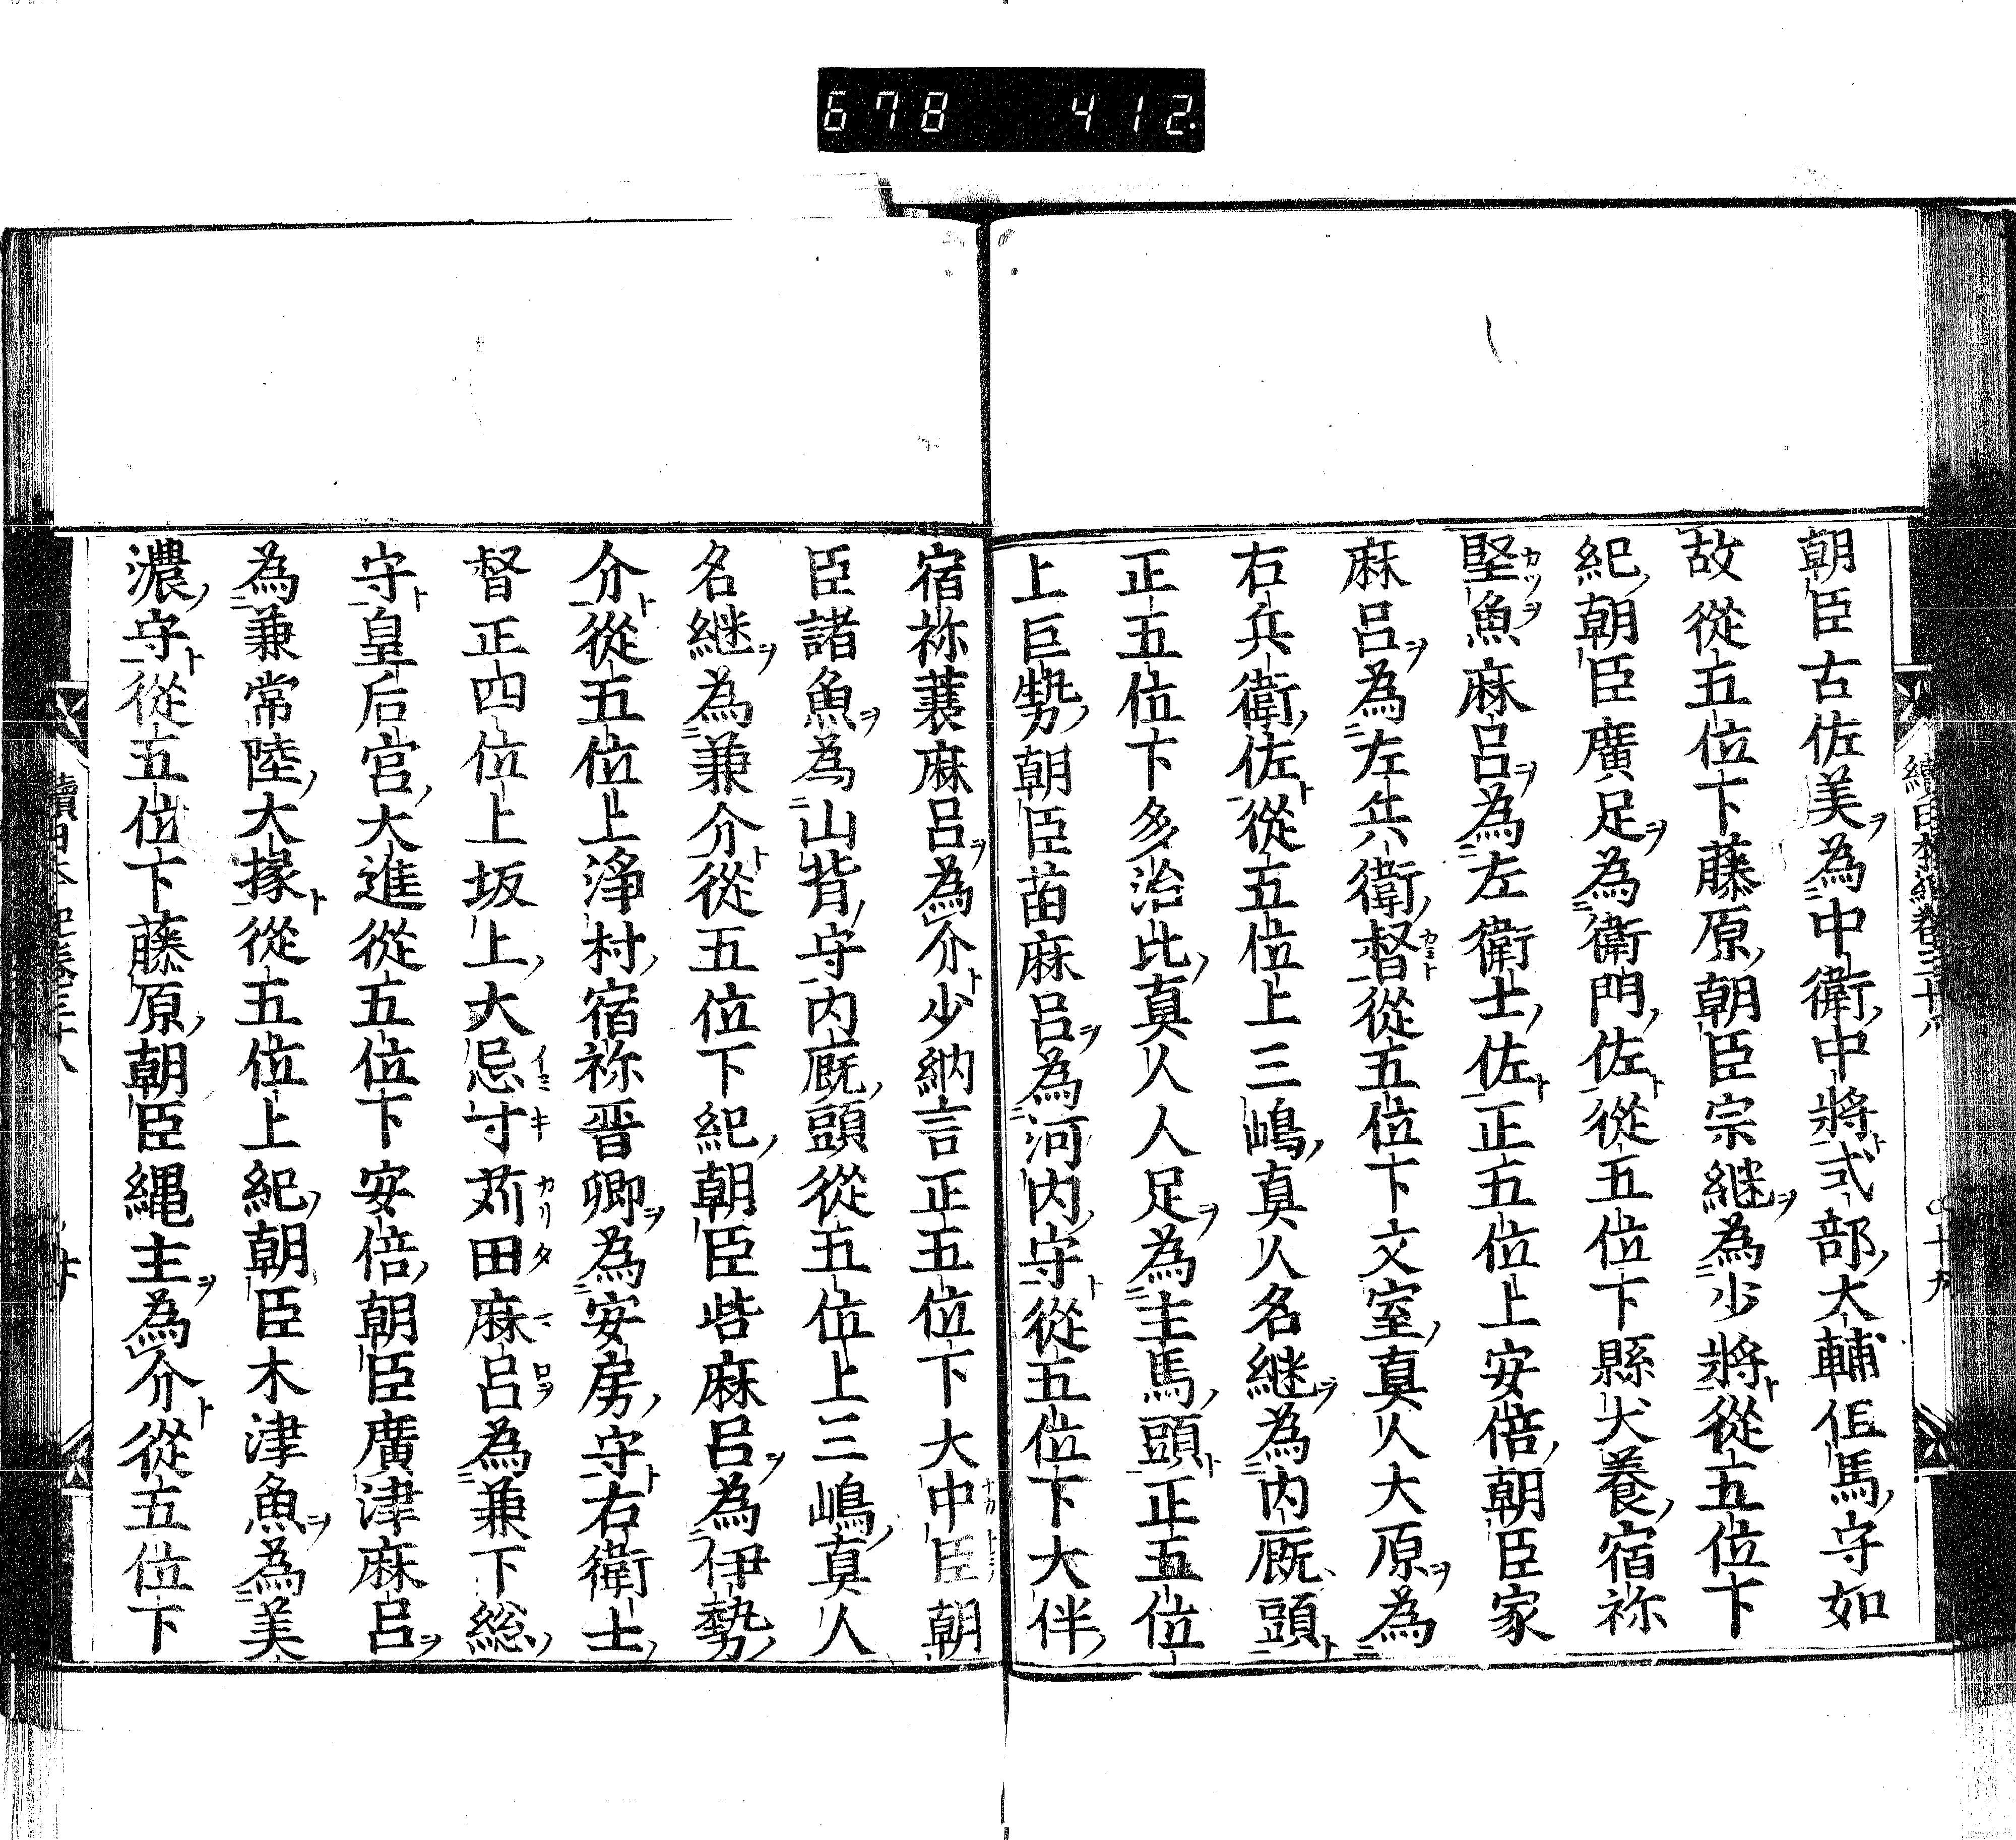 678 412.
朝臣古佐美ヲ為二中衛中將ト式部大輔但馬守如
故從五位下藤原朝臣宗継ヲ為二少將ト從五位下
紀朝臣廣足ヲ為二衛門佐一ト從五位下縣犬養宿祢
堅魚麻呂ヲ為二左衛士佐一ト正五位上安倍朝臣家
麻呂ヲ為二左兵衛督一ト從五位下文室真人大原ヲ為二
右兵衛佐一ト從五位上三嶋真人名継ヲ為二内厩頭ト
正五位下多治比真人人足ヲ為二主馬頭一ト正五位
上巨勢朝臣苗麻呂ヲ為二河内守一ト從五位下大伴
宿祢蓑麻呂ヲ為介ト少納言正五位下大中臣朝
臣諸魚ヲ為二山背守一内厩頭從五位上三嶋真人
名継ヲ為二兼介ト從五位下紀朝臣呰麻呂ヲ為二伊勢
介一ト從五位上浄村宿祢晋卿ヲ為二安房守一ト右衛士
督正四位上坂上大忌寸苅田麻呂ヲ為二兼下総
守一ト皇后宮大進從五位下安倍朝臣廣津麻呂ヲ
為二兼常陸大掾ト從五位上紀朝臣木津魚ヲ為二美
濃守一ト從五位下藤原朝臣縄主ヲ為介ト從五位下